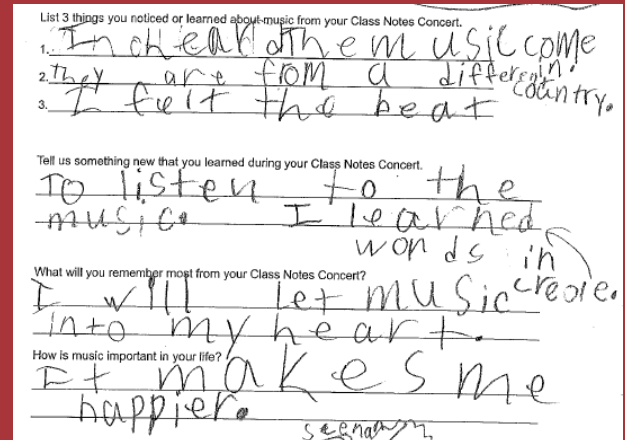 List 3 things you noticed or learned about music from your Class Notes Concert.
1. In heard them usic come in.
2. They are from a different country.
3. I felt the beat
Tell us something new that you learned during your Class Notes Concert.
To listen to the
music. I learned
words in
creole.
What will you remember most from your Class Notes Concert?
I will Let music
into my heart.
How is music important in your life?
It makes me
happier.